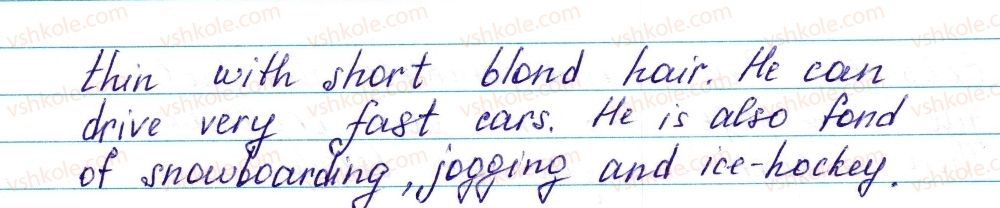 thin with short blond hair. He can
drive very fast cars. He is also fond
of snowboarding, jogging and ice-hockey.